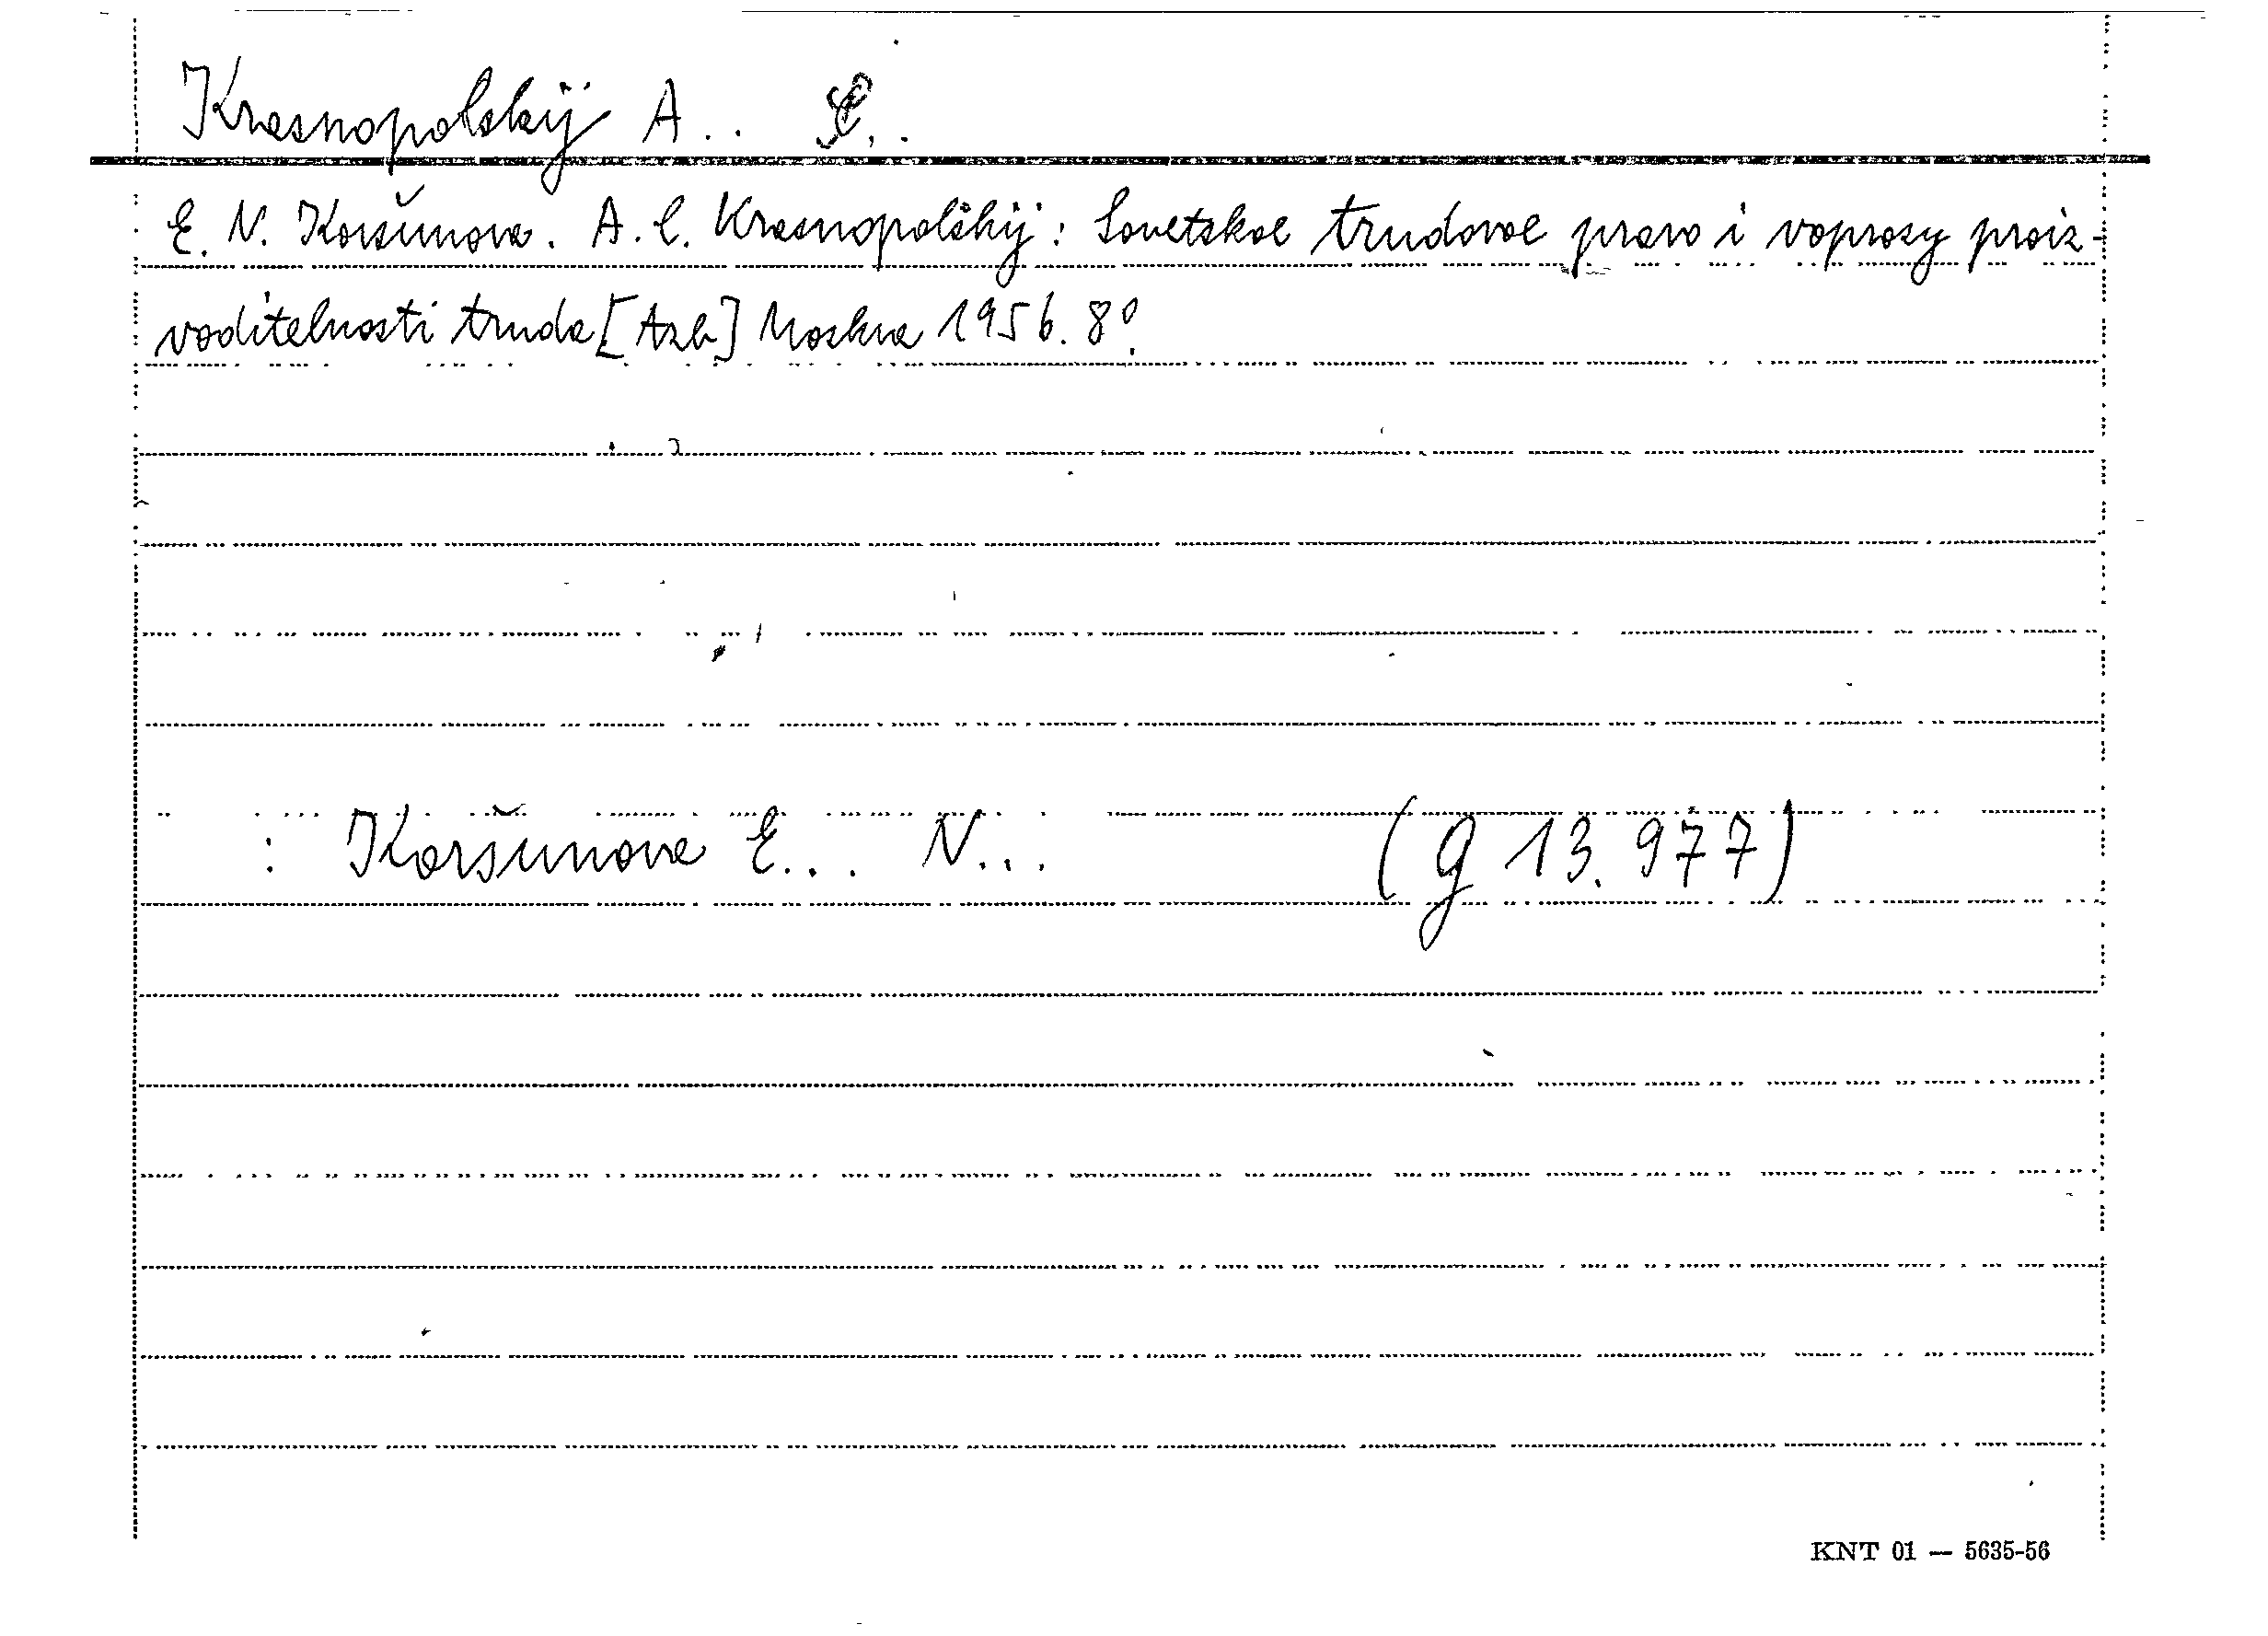 Krasnopolskij A..
E. N. Koršunova. A. C. Krasnopolśkij: Sovetskoe trudovoe pravo i voprosy proiz-
voditelnosti truda [Azb] Moskva 1956. 8º.
: Koršunova E... N... (g 13.977)
KNT 01 — 5635-56